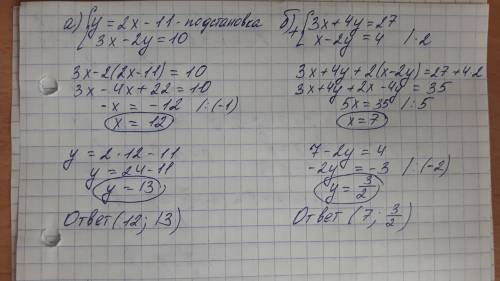 а) { y = 2x - 11 - подстановка
3x - 2y = 10
3x - 2(2x - 11) = 10
3x - 4x + 22 = 10
-x = -12 /: (-1)
x = 12
y = 2 · 12 - 11
y = 24 - 11
y = 13
Ответ (12; 13)
б) + { 3x + 4y = 27
x - 2y = 4 / · 2
3x + 4y + 2(x - 2y) = 27 + 4·2
3x + 4y + 2x - 4y = 35
5x = 35 /: 5
x = 7
7 - 2y = 4
-2y = -3 /: (-2)
y = 3/2
Ответ (7; 3/2)